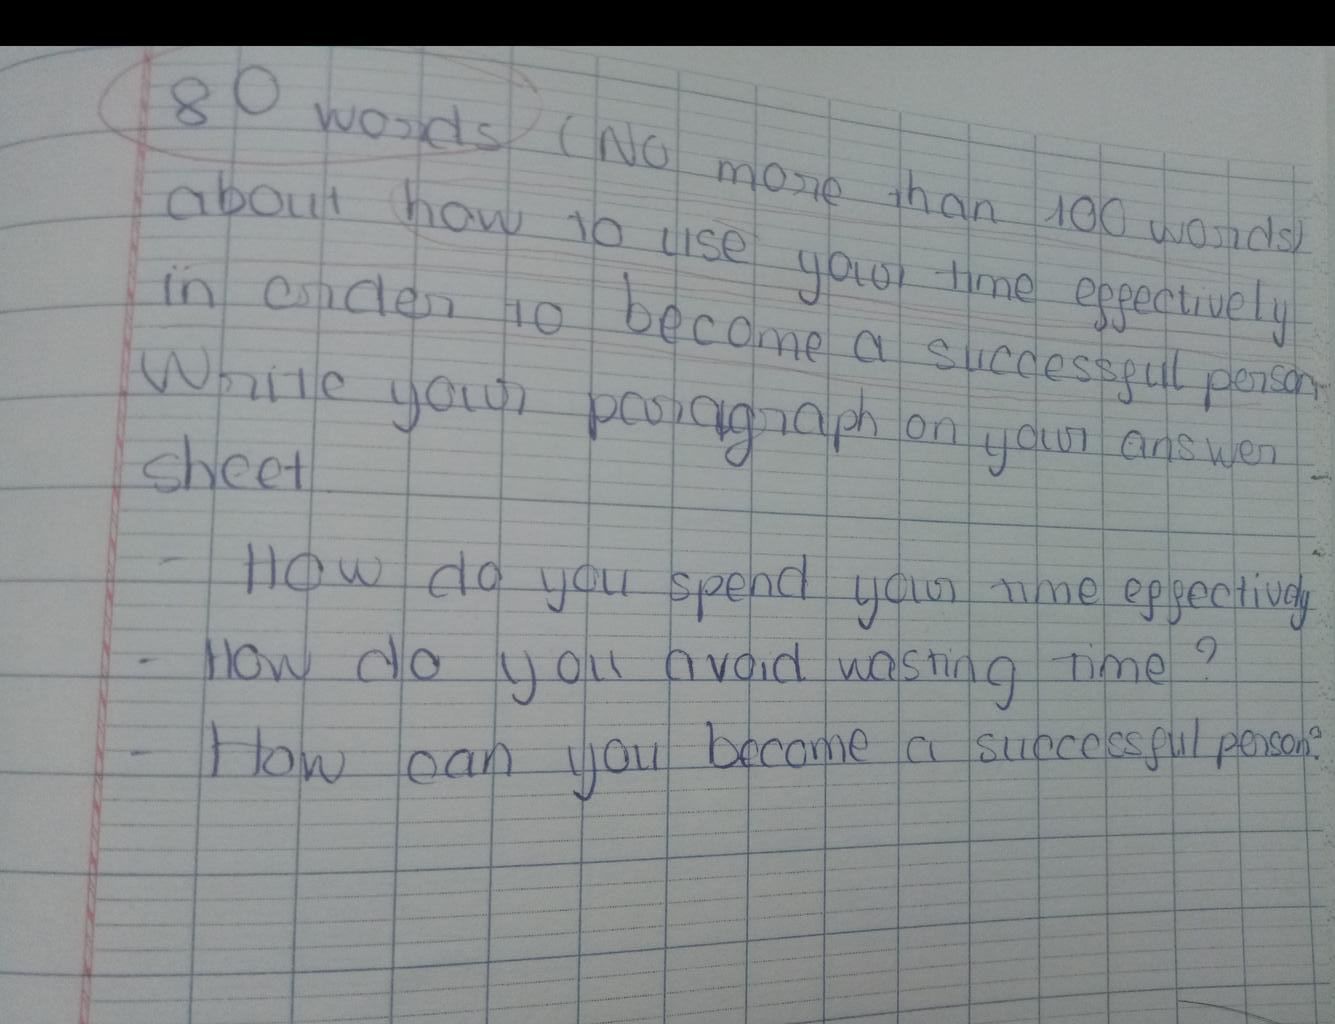 80 words (No more than 100 words)
about how to use your time effectively
in order to become a successful person,
Write your paragraph on your answer
sheet
- How do you spend your time effectively
- How do you avoid wasting time?
- How can you become a successful person?